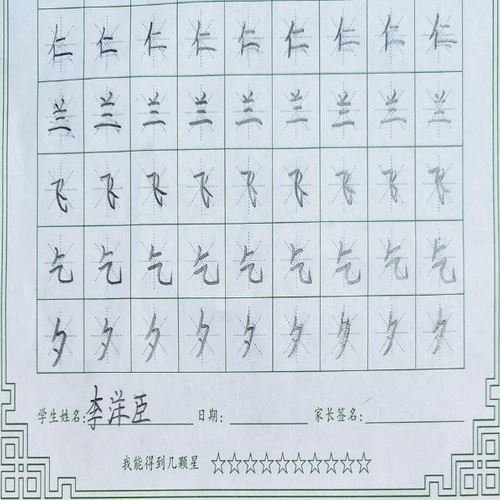 仁仁仁仁仁仁仁仁仁
兰兰兰兰兰兰兰兰兰
飞飞飞飞飞飞飞飞飞
乞乞乞乞乞乞乞乞乞
夕夕夕夕夕夕夕夕夕
学生姓名:李洋臣 日期: 家长签名:
我能得到几颗星 ☆☆☆☆☆☆☆☆☆☆